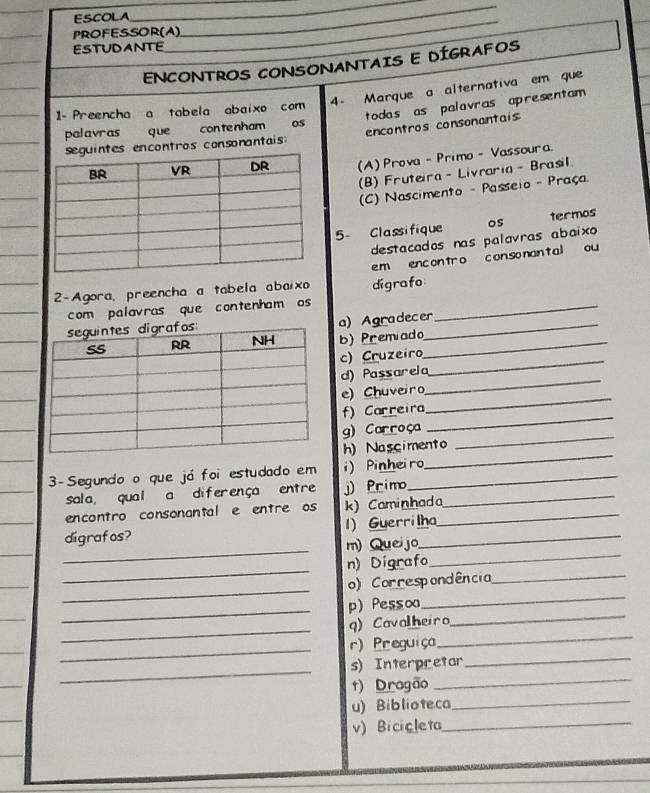 ESCOLA
PROFESSOR(A)
ESTUDANTE
ENCONTROS CONSONANTAIS E DÍGRAFOS
1- Preencha a tabela abaixo com
palavras que contenham os
seguintes encontros consonantais:
BR VR DR
2-Agora, preencha a tabela abaixo
com palavras que contenham os
seguintes dígrafos:
SS RR NH
3-Segundo o que já foi estudado em
sala, qual a diferença entre
encontro consonantal e entre os
dígrafos?
4- Marque a alternativa em que
todas as palavras apresentam
encontros consonantais:
(A) Prova - Primo - Vassoura.
(B) Fruteira - Livraria - Brasil.
(C) Nascimento - Passeio - Praça.
5- Classifique os termos
destacados nas palavras abaixo
em encontro consonantal ou
dígrafo:
a) Agradecer
b) Premiado
c) Cruzeiro
d) Passarela
e) Chuveiro
f) Carreira
g) Carroça
h) Nascimento
i) Pinheiro
j) Primo
k) Caminhada
l) Guerrilha
m) Queijo
n) Dígrafo
o) Correspondência
p) Pessoa
q) Cavalheiro
r) Preguiça
s) Interpretar
t) Dragão
u) Biblioteca
v) Bicicleta